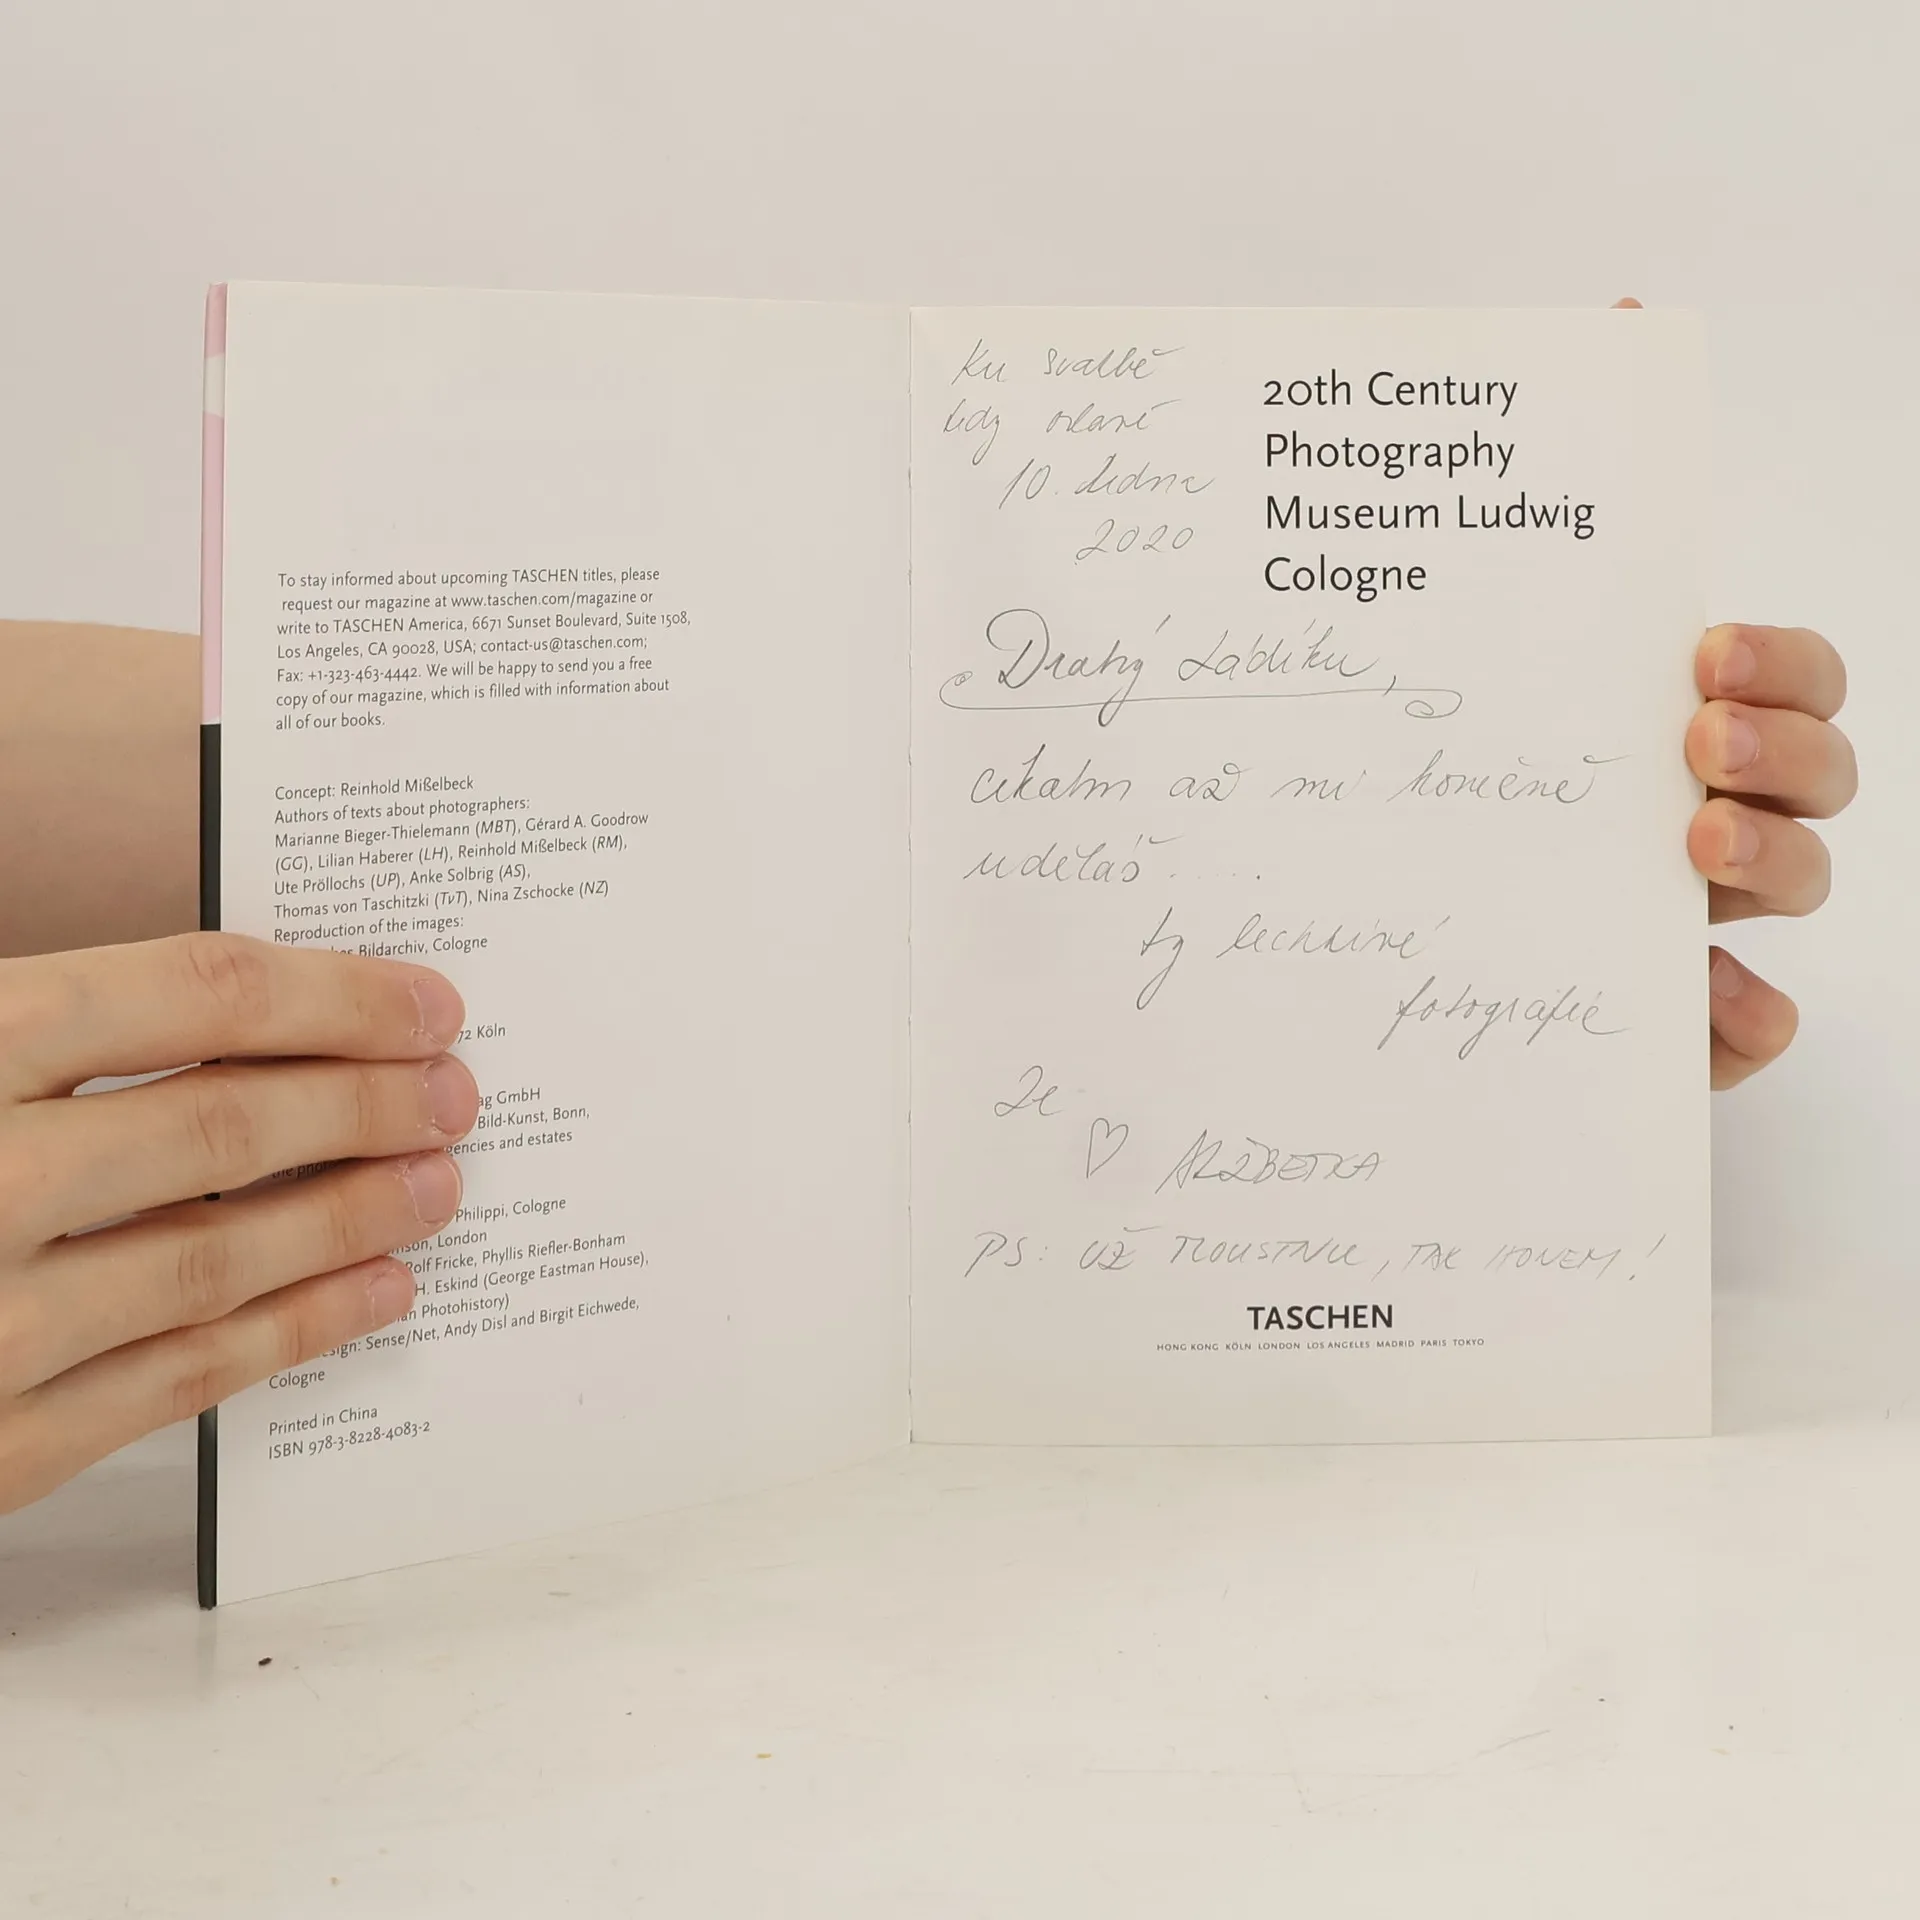 To stay informed about upcoming TASCHEN titles, please
request our magazine at www.taschen.com/magazine or
write to TASCHEN America, 6671 Sunset Boulevard, Suite 1508,
Los Angeles, CA 90028, USA; contact-us@taschen.com;
Fax: +1-323-463-4442. We will be happy to send you a free
copy of our magazine, which is filled with information about
all of our books.
Concept: Reinhold Mißelbeck
Authors of texts about photographers:
Marianne Bieger-Thielemann (MBT), Gérard A. Goodrow
(GG), Lilian Haberer (LH), Reinhold Mißelbeck (RM),
Ute Pröllochs (UP), Anke Solbrig (AS),
Thomas von Taschitzki (TvT), Nina Zschocke (NZ)
Reproduction of the images:
Bildarchiv, Cologne
72 Köln
GmbH
Bild-Kunst, Bonn,
and estates
Philippi, Cologne
London
Rolf Fricke, Phyllis Riefler-Bonham
H. Eskind (George Eastman House),
Photohistory)
Sense/Net, Andy Disl and Birgit Eichwede,
Cologne
Printed in China
ISBN 978-3-8228-4083-2
Ku svatbě
tedy
10. ledna
2020
20th Century
Photography
Museum Ludwig
Cologne
Drahý Ládíku,
čekám až mi konečně
uděláš .....
ty lechtivé
fotografie
ALŽBETKA
PS: UŽ TLOUSTNU, TAK HONEM!
TASCHEN
HONG KONG KÖLN LONDON LOS ANGELES MADRID PARIS TOKYO